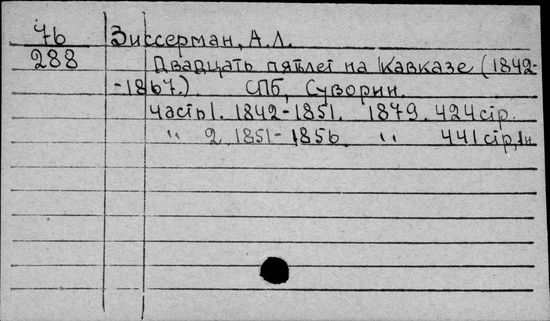 76
288
Зиссерман, А.Л.
Двадцать пятлет на Кавказе (1842-
-1867.) СПб, Суворин.
часть 1. 1842-1851. 1879. 424 стр.
" 2. 1851-1856. " 441 стр, 1н